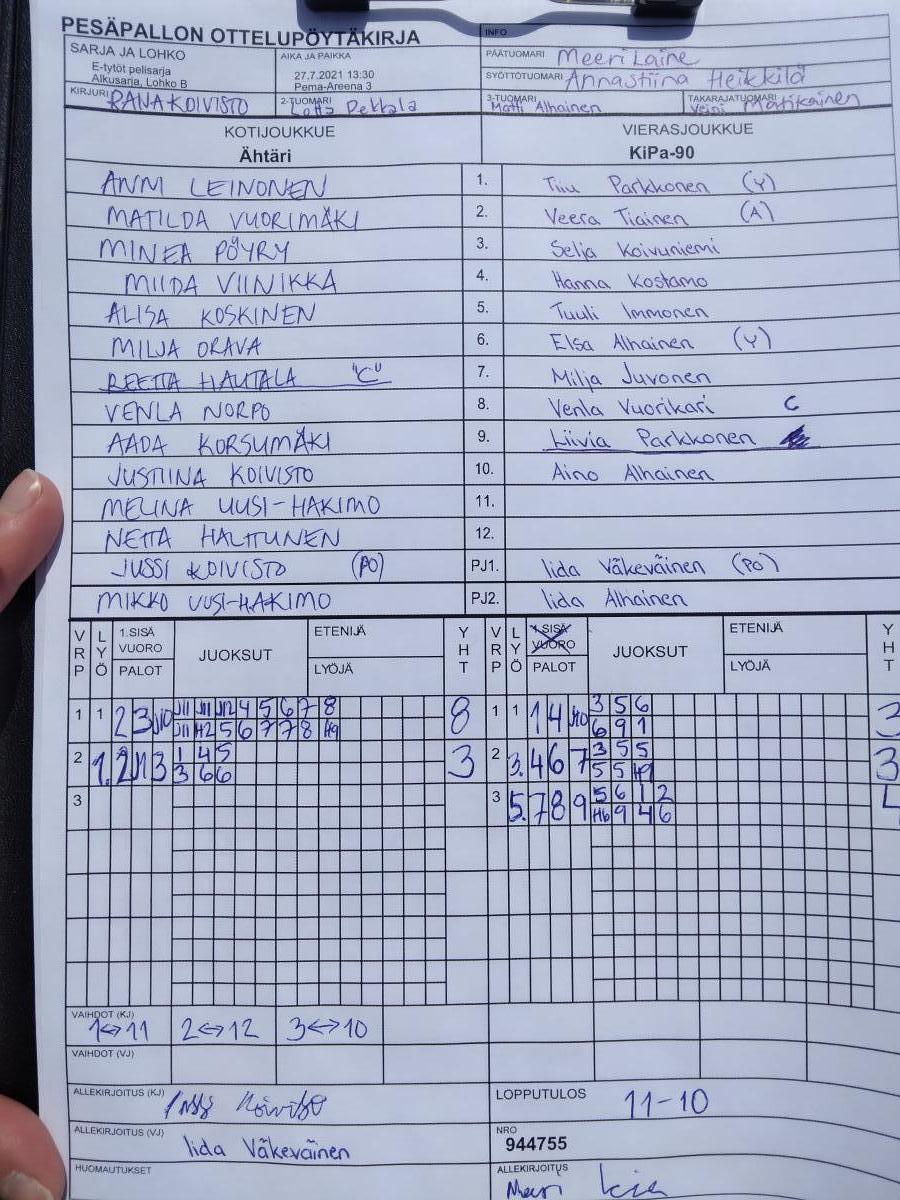 PESÄPALLON OTTELUPÖYTÄKIRJA
INFO
SARJA JA LOHKO
E-tytöt pelisarja
Alkusarja, Lohko B
AIKA JA PAIKKA
27.7.2021 13:30
Pema-Areena 3
PÄÄTUOMARI Meeri Laine
SYÖTTÖTUOMARI Annastiina Heikkilä
KIRJURI RANA KOIVISTO
2-TUOMARI Lotta Pekkala
3-TUOMARI Matti Alhainen
TAKARAJATUOMARI Veini Matikainen
KOTIJOUKKUE
Ähtäri
VIERASJOUKKUE
KiPa-90
ANNI LEINONEN 1. Tiiu Parkkonen (Y)
MATILDA VUORIMÄKI 2. Veera Tiainen (A)
MINEA PÖYRY 3. Selja Koivuniemi
MIIDA VIINIKKA 4. Hanna Kostamo
ALISA KOSKINEN 5. Tuuli Immonen
MILJA ORAVA 6. Elsa Alhainen (Y)
REETTA HAUTALA "C" 7. Milja Juvonen
VENLA NORPO 8. Venla Vuorikari C
AADA KORSUMÄKI 9. Liivia Parkkonen
JUSTIINA KOIVISTO 10. Aino Alhainen
MELINA UUSI-HAKIMO 11.
NETTA HALTTUNEN 12.
JUSSI KOIVISTO (PO) PJ1. Iida Väkeväinen (PO)
MIKKO UUSI-HAKIMO PJ2. Iida Alhainen
VRP LYÖ 1.SISÄ VUORO PALOT JUOKSUT ETENIJÄ LYÖJÄ YHT
VRP LYÖ 1.SISÄ VUORO PALOT JUOKSUT ETENIJÄ LYÖJÄ YHT
1 1 2 3 J10 J11 J11 J12 4 5 6 7 8 8
J11 H2 5 6 7 7 8 H9
1 1 1 4 J10 3 5 6 3
6 9 1
2 1. 2 11 3 1 4 5 3
3 6 6
2 3. 4 6 7 3 5 5 3
5 5 H9
3
3 5. 7 8 9 5 6 1 2
H6 9 4 6
VAIHDOT (KJ)
1↔11 2↔12 3↔10
VAIHDOT (VJ)
ALLEKIRJOITUS (KJ) Jussi Koivisto
LOPPUTULOS 11-10
ALLEKIRJOITUS (VJ) Iida Väkeväinen
NRO
944755
HUOMAUTUKSET
ALLEKIRJOITUS Meeri